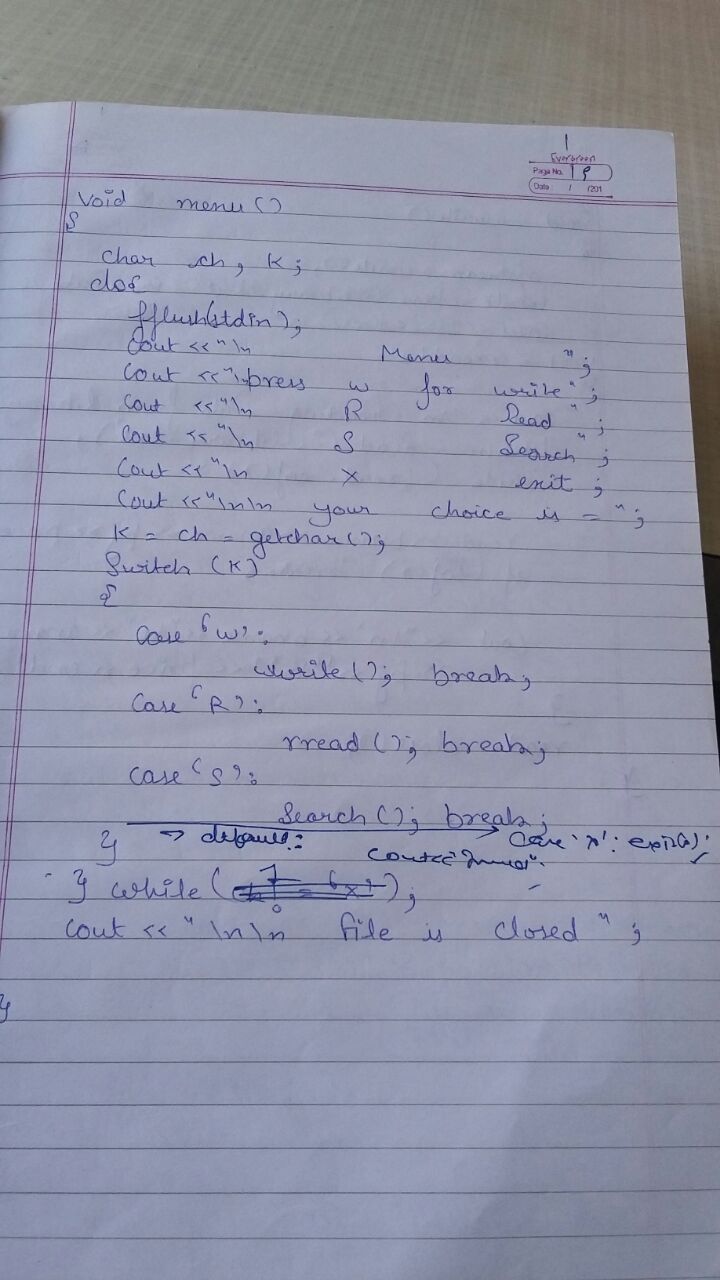 Evergreen
Page No. 19
Date / /201
void menu ()
{
char ch, K;
do{
fflush(stdin);
cout <<"\n Menu ";
cout <<"\npress w for write";
cout <<"\n R Read ";
cout <<"\n S Search";
cout <<"\n X exit ;
cout <<"\n\n your choice is = ";
K = ch = getchar();
Switch (K)
{
case 'W':
wwrite (); break;
case 'R':
rread (); break;
case 'S':
Search(); break;
} → default: case 'x': exit(0);
cout<<
} while ( );
cout << "\n\n file is closed ";
}